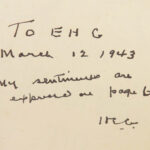 TO E H G
March 12 1943
My sentiments are
expressed on page 6